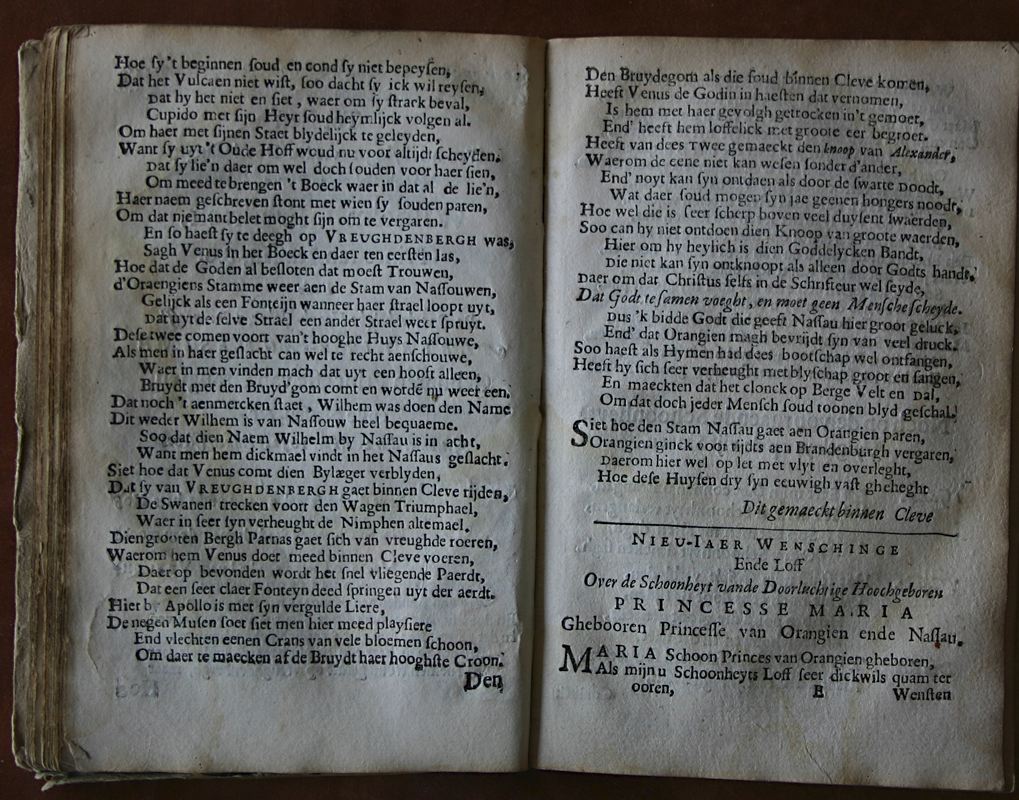 Hoe sy't beginnen soud en cond sy niet bepeysen,
Dat het Vulcaen niet wist, soo dacht sy ick wil reysen,
Dat hy het niet en siet, waer om sy strack beval,
Cupido met sijn Heyr soud heymlijck volgen al.
Om haer met sijnen Staet blydelijck te geleyden,
Want sy uyt 't Oude Hoff woud nu voor altijdt scheyden.
Dat sy lie'n daer om wel doch souden voor haer sien,
Om meed te brengen 't Boeck waer in dat al de lie'n,
Haer naem geschreven stont met wien sy souden paren,
Om dat niemant belet moght sijn om te vergaren.
En so haest sy te deegh op VREUGHDENBERGH was,
Sagh Venus in het Boeck en daer ten eersten las,
Hoe dat de Goden al besloten dat moest Trouwen,
d'Oraengiens Stamme weer aen de Stam van Nassouwen,
Gelijck als een Fonteijn wanneer haer strael loopt uyt,
Dat uyt de selve Strael een ander Strael weer spruyt.
Dese twee comen voort van't hooghe Huys Nassouwe,
Als men in haer geslacht can wel te recht aenschouwe,
Waer in men vinden mach dat uyt een hooft alleen,
Bruydt met den Bruyd'gom comt en wordē nu weer een.
Dat noch 't aenmercken staet, Wilhem was doen den Name
Dit weder Wilhem is van Nassouw heel bequaeme.
Soo dat dien Naem Wilhelm by Nassau is in acht,
Want men hem dickmael vindt in het Nassaus geslacht.
Siet hoe dat Venus comt dien Bylæger verblyden,
Dat sy van VREUGHDENBERGH gaet binnen Cleve rijden,
De Swanen trecken voort den Wagen Triumphael,
Waer in seer syn verheught de Nimphen altemael.
Dien grooten Bergh Parnas gaet sich van vreughde roeren,
Waerom hem Venus doet meed binnen Cleve voeren,
Daer op bevonden wordt het snel vliegende Paerdt,
Dat een seer claer Fonteyn deed springen uyt der aerdt.
Hier by Apollo is met syn vergulde Liere,
De negen Musen soet siet men hier meed playsiere
End vlechten eenen Crans van vele bloemen schoon,
Om daer te maecken af de Bruydt haer hooghste Croon.
Den
Den Bruydegom als die soud binnen Cleve komen,
Heeft Venus de Godin in haesten dat vernomen,
Is hem met haer gevolgh getrocken in't gemoet,
End' heeft hem loffelick met groote eer begroet.
Heeft van dees Twee gemaeckt den knoop van Alexander,
Waerom de eene niet kan wesen sonder d'ander,
End' noyt kan syn ontdaen als door de swarte Doodt,
Wat daer soud mogen syn jae geenen hongers noodt,
Hoe wel die is seer scherp boven veel duysent swaerden,
Soo can hy niet ontdoen dien Knoop van groote waerden,
Hier om hy heylich is dien Goddelycken Bandt,
Die niet kan syn ontknoopt als alleen door Godts handt,
Daer om dat Christus selfs in de Schrifteur wel seyde,
Dat Godt te samen voeght, en moet geen Mensche scheyde.
Dus 'k bidde Godt die geeft Nassau hier groot geluck,
End' dat Orangien magh bevrijdt syn van veel druck.
Soo haest als Hymen had dees bootschap wel ontfangen,
Heeft hy sich seer verheught met blyschap groot en sangen,
En maeckten dat het clonck op Berge Velt en Dal,
Om dat doch jeder Mensch soud toonen blyd geschal.
Siet hoe den Stam Nassau gaet aen Orangien paren,
Orangien ginck voor tijdts aen Brandenburgh vergaren,
Daerom hier wel op let met vlyt en overleght,
Hoe dese Huysen dry syn eeuwigh vast gheheght
Dit gemaeckt binnen Cleve
NIEU-IAER WENSCHINGE
Ende Loff
Over de Schoonheyt vande Doorluchtige Hoochgeboren
PRINCESSE MARIA
Ghebooren Princesse van Orangien ende Nassau.
MARIA Schoon Princes van Orangien gheboren,
Als mijn u Schoonheyts Loff seer dickwils quam ter
ooren, E Wensten